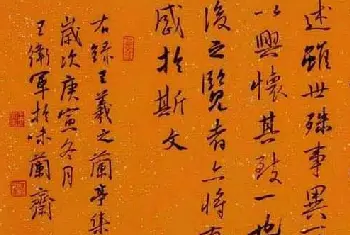 述雖世殊事異
以興懷其致一也
後之覽者亦將有
感於斯文
右錄王羲之蘭亭集
歲次庚寅冬月
王衛軍於味蘭齋